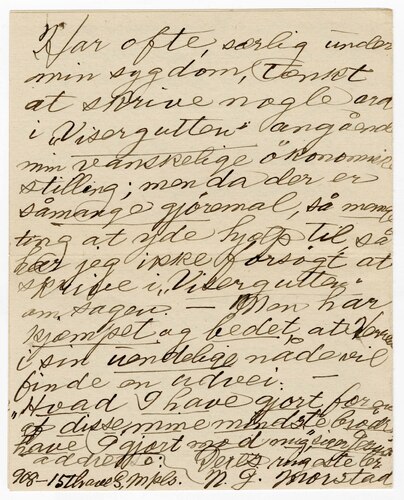 Har ofte, særlig under
min sygdom, tænkt
at skrive nogle ord
i „Visergutten" angående
min vanskelige økonomiske
stilling; men da der er
såmange gjøremal, så mange
ting at yde hjelp til, så
har jeg ikke forsøgt at
skrive i „Visergutten"
om sagen. — Men har
kjæmpet og bedet, at Herren
i sin uendelige nåde vil
finde en udvei. —
„Hvad I have gjort for en
af disse mine mindste brødre
have I gjort mod mig" siger
address: Deres ringe
908-15th ave S, Mpls. N. J.